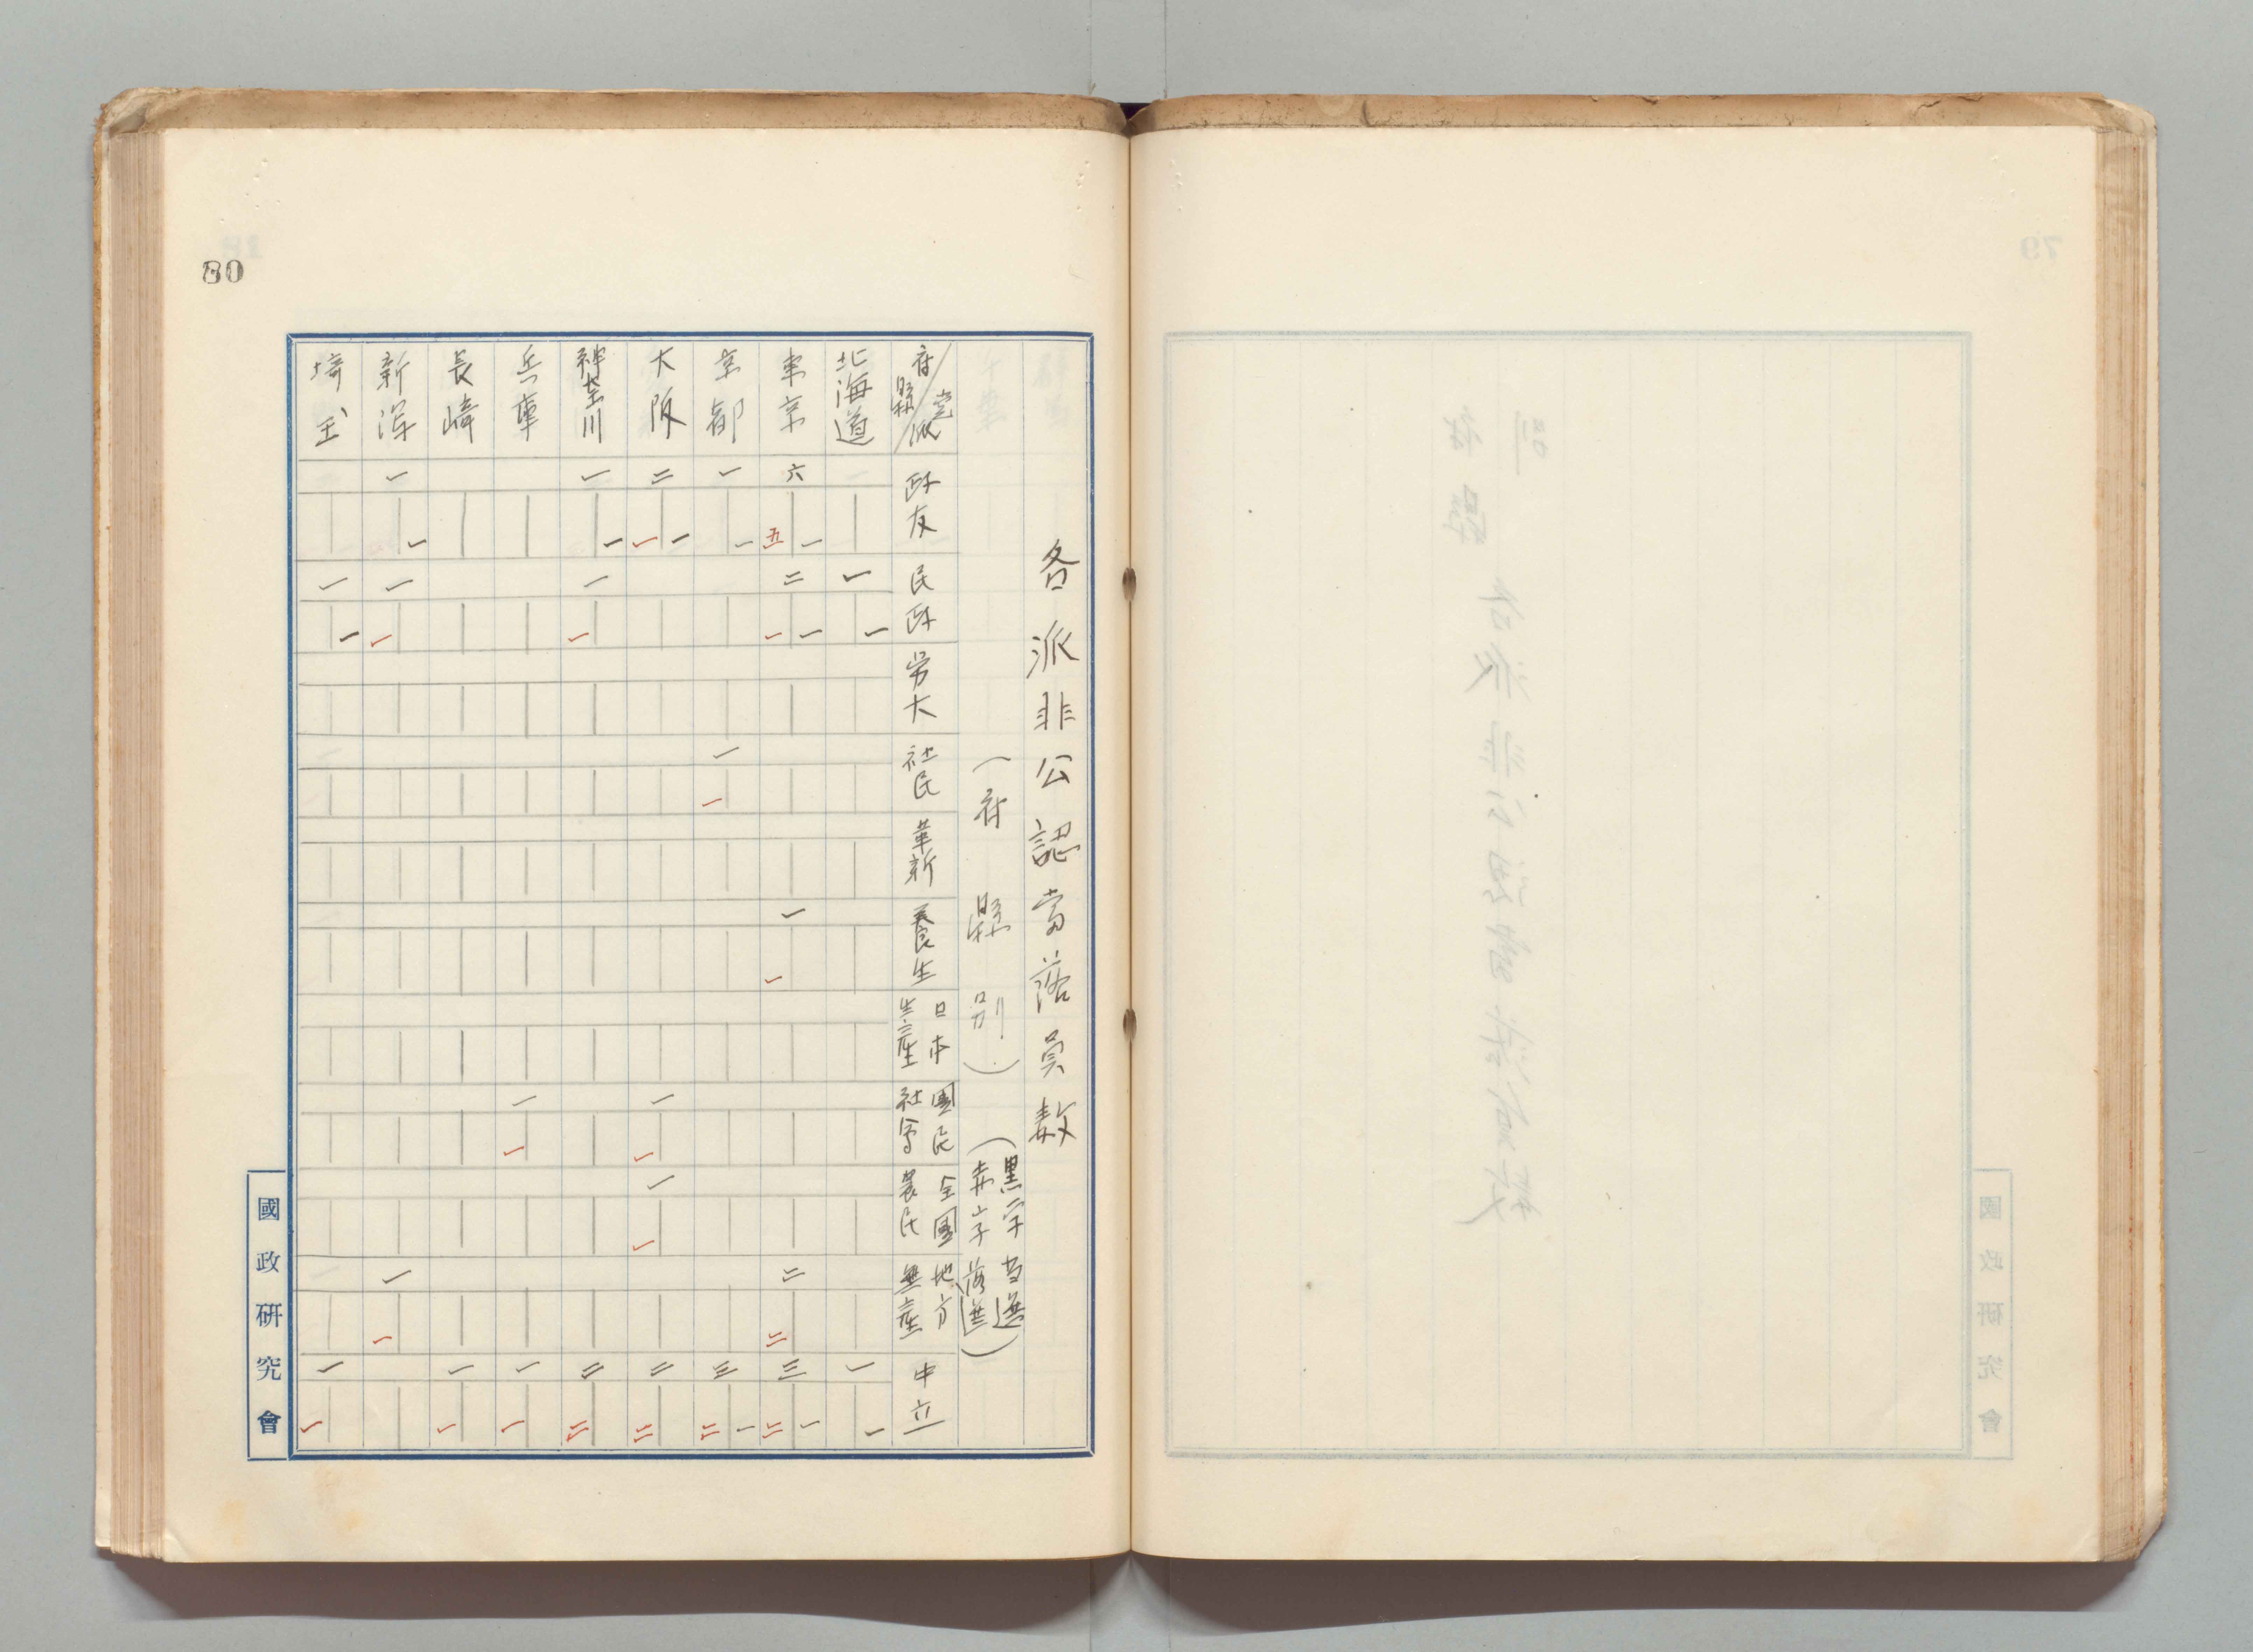 80
各派非公認当落員数
(府縣別)
(黒字当選
赤字落選)
府縣 党派 政友 民政 労大 社民 革新 養生 日本生産 國民社会 全國農民 地方無産 中立
北海道 一 一 一 一
東京 六 一 五 二 一 一 一 一 二 二 三 一 二
京都 一 一 一 一 三 一 二
大阪 二 一 一 一 一 一 一 二 二
神奈川 一 一 一 一 二 二
兵庫 一 一 一 一
長崎 一 一
新潟 一 一 一 一 一 一
埼玉 一 一 一 一
國政研究會